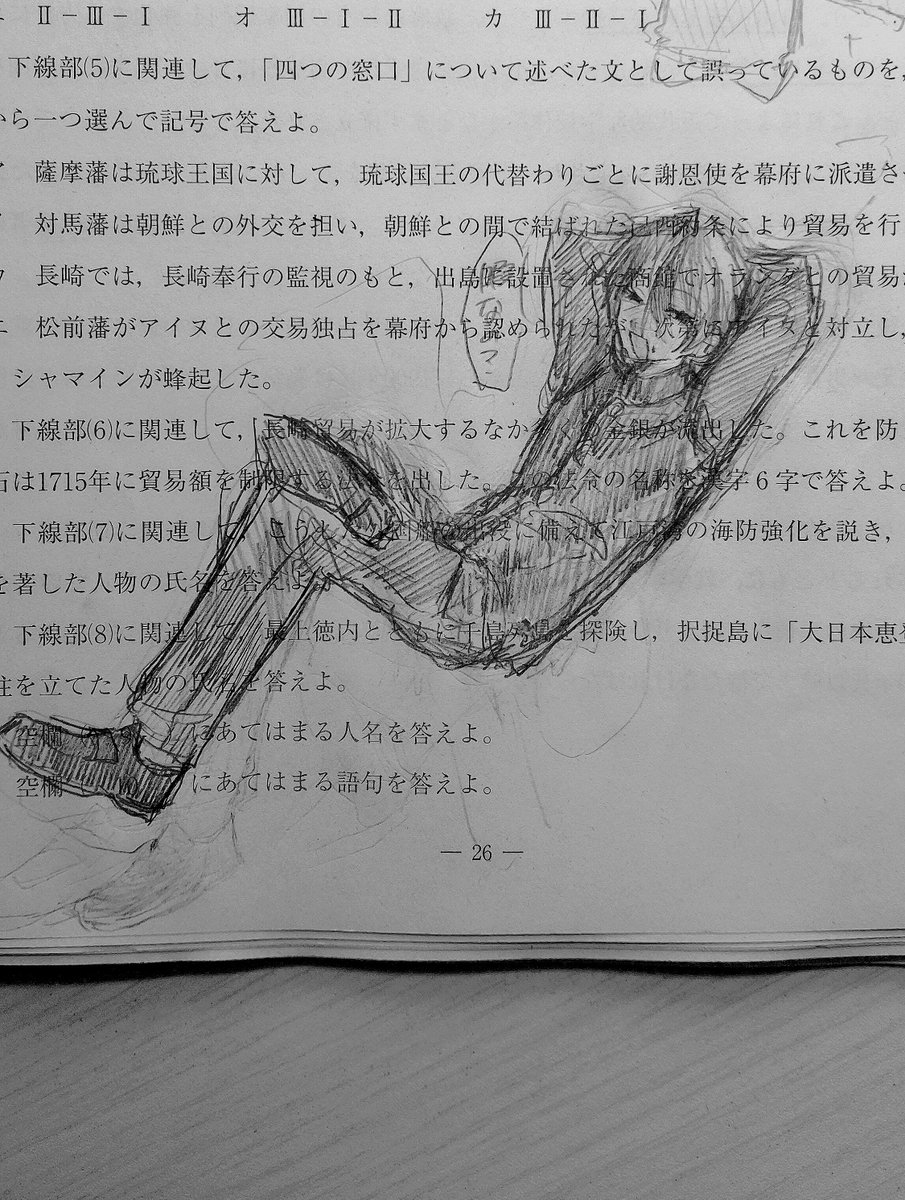 Ⅱ－Ⅲ－Ⅰ オ Ⅲ－Ⅰ－Ⅱ カ Ⅲ－Ⅱ－Ⅰ
下線部(5)に関連して，「四つの窓口」について述べた文として誤っているものを，
から一つ選んで記号で答えよ。
薩摩藩は琉球王国に対して，琉球国王の代替わりごとに謝恩使を幕府に派遣さ
対馬藩は朝鮮との外交を担い，朝鮮との間で結ばれた己酉約条により貿易を行
ウ 長崎では，長崎奉行の監視のもと，出島に設置された商館でオランダとの貿易が
エ 松前藩がアイヌとの交易独占を幕府から認められたが，次第にアイヌと対立し，
シャマインが蜂起した。
下線部(6)に関連して，長崎貿易が拡大するなか多くの金銀が流出した。これを防
石は1715年に貿易額を制限する法令を出した。この法令の名称を漢字６字で答えよ。
下線部(7)に関連して，こうした外国船の出没に備えて江戸湾の海防強化を説き，
を著した人物の氏名を答えよ。
下線部(8)に関連して，最上徳内とともに千島列島を探険し，択捉島に「大日本恵登
柱を立てた人物の氏名を答えよ。
空欄 にあてはまる人名を答えよ。
空欄 にあてはまる語句を答えよ。
暇なの？
― 26 ―